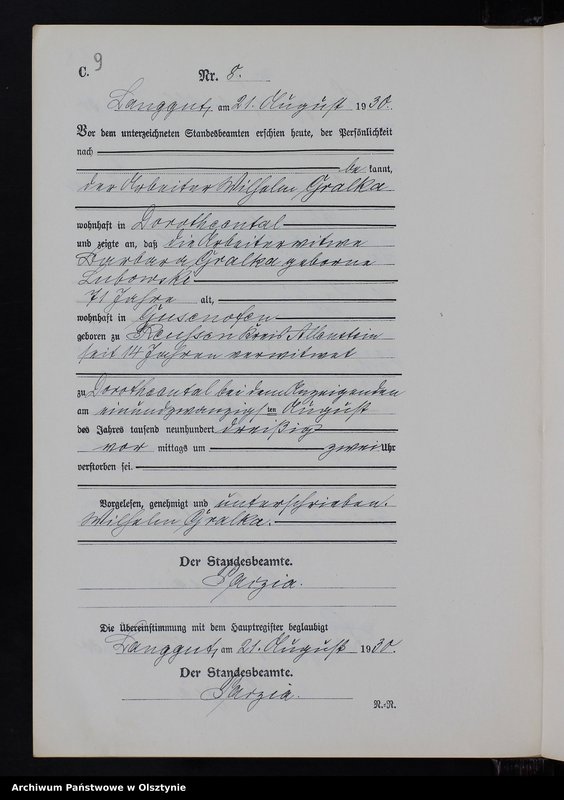 C. 9
Nr. 8.
Langgut, am 21. August 1930.
Vor dem unterzeichneten Standesbeamten erschien heute, der Persönlichkeit
nach
be kannt,
der Arbeiter Wilhelm Gralka
wohnhaft in Dorotheental
und zeigte an, daß die Arbeiterwitwe
Barbara Gralka geborne
Lubowski
71 Jahre alt,
wohnhaft in Gusenofen
geboren zu Reussen Kreis Allenstein
seit 14 Jahren verwitwet
zu Dorotheental bei dem Anzeigenden
am einundzwanzigsten August
des Jahres tausend neunhundert dreißig
vor mittags um zwei Uhr
verstorben sei.
Vorgelesen, genehmigt und unterschrieben.
Wilhelm Gralka.
Der Standesbeamte.
Die Übereinstimmung mit dem Hauptregister beglaubigt
Langgut, am 21. August 1930.
Der Standesbeamte.
R.-R.
Archiwum Państwowe w Olsztynie